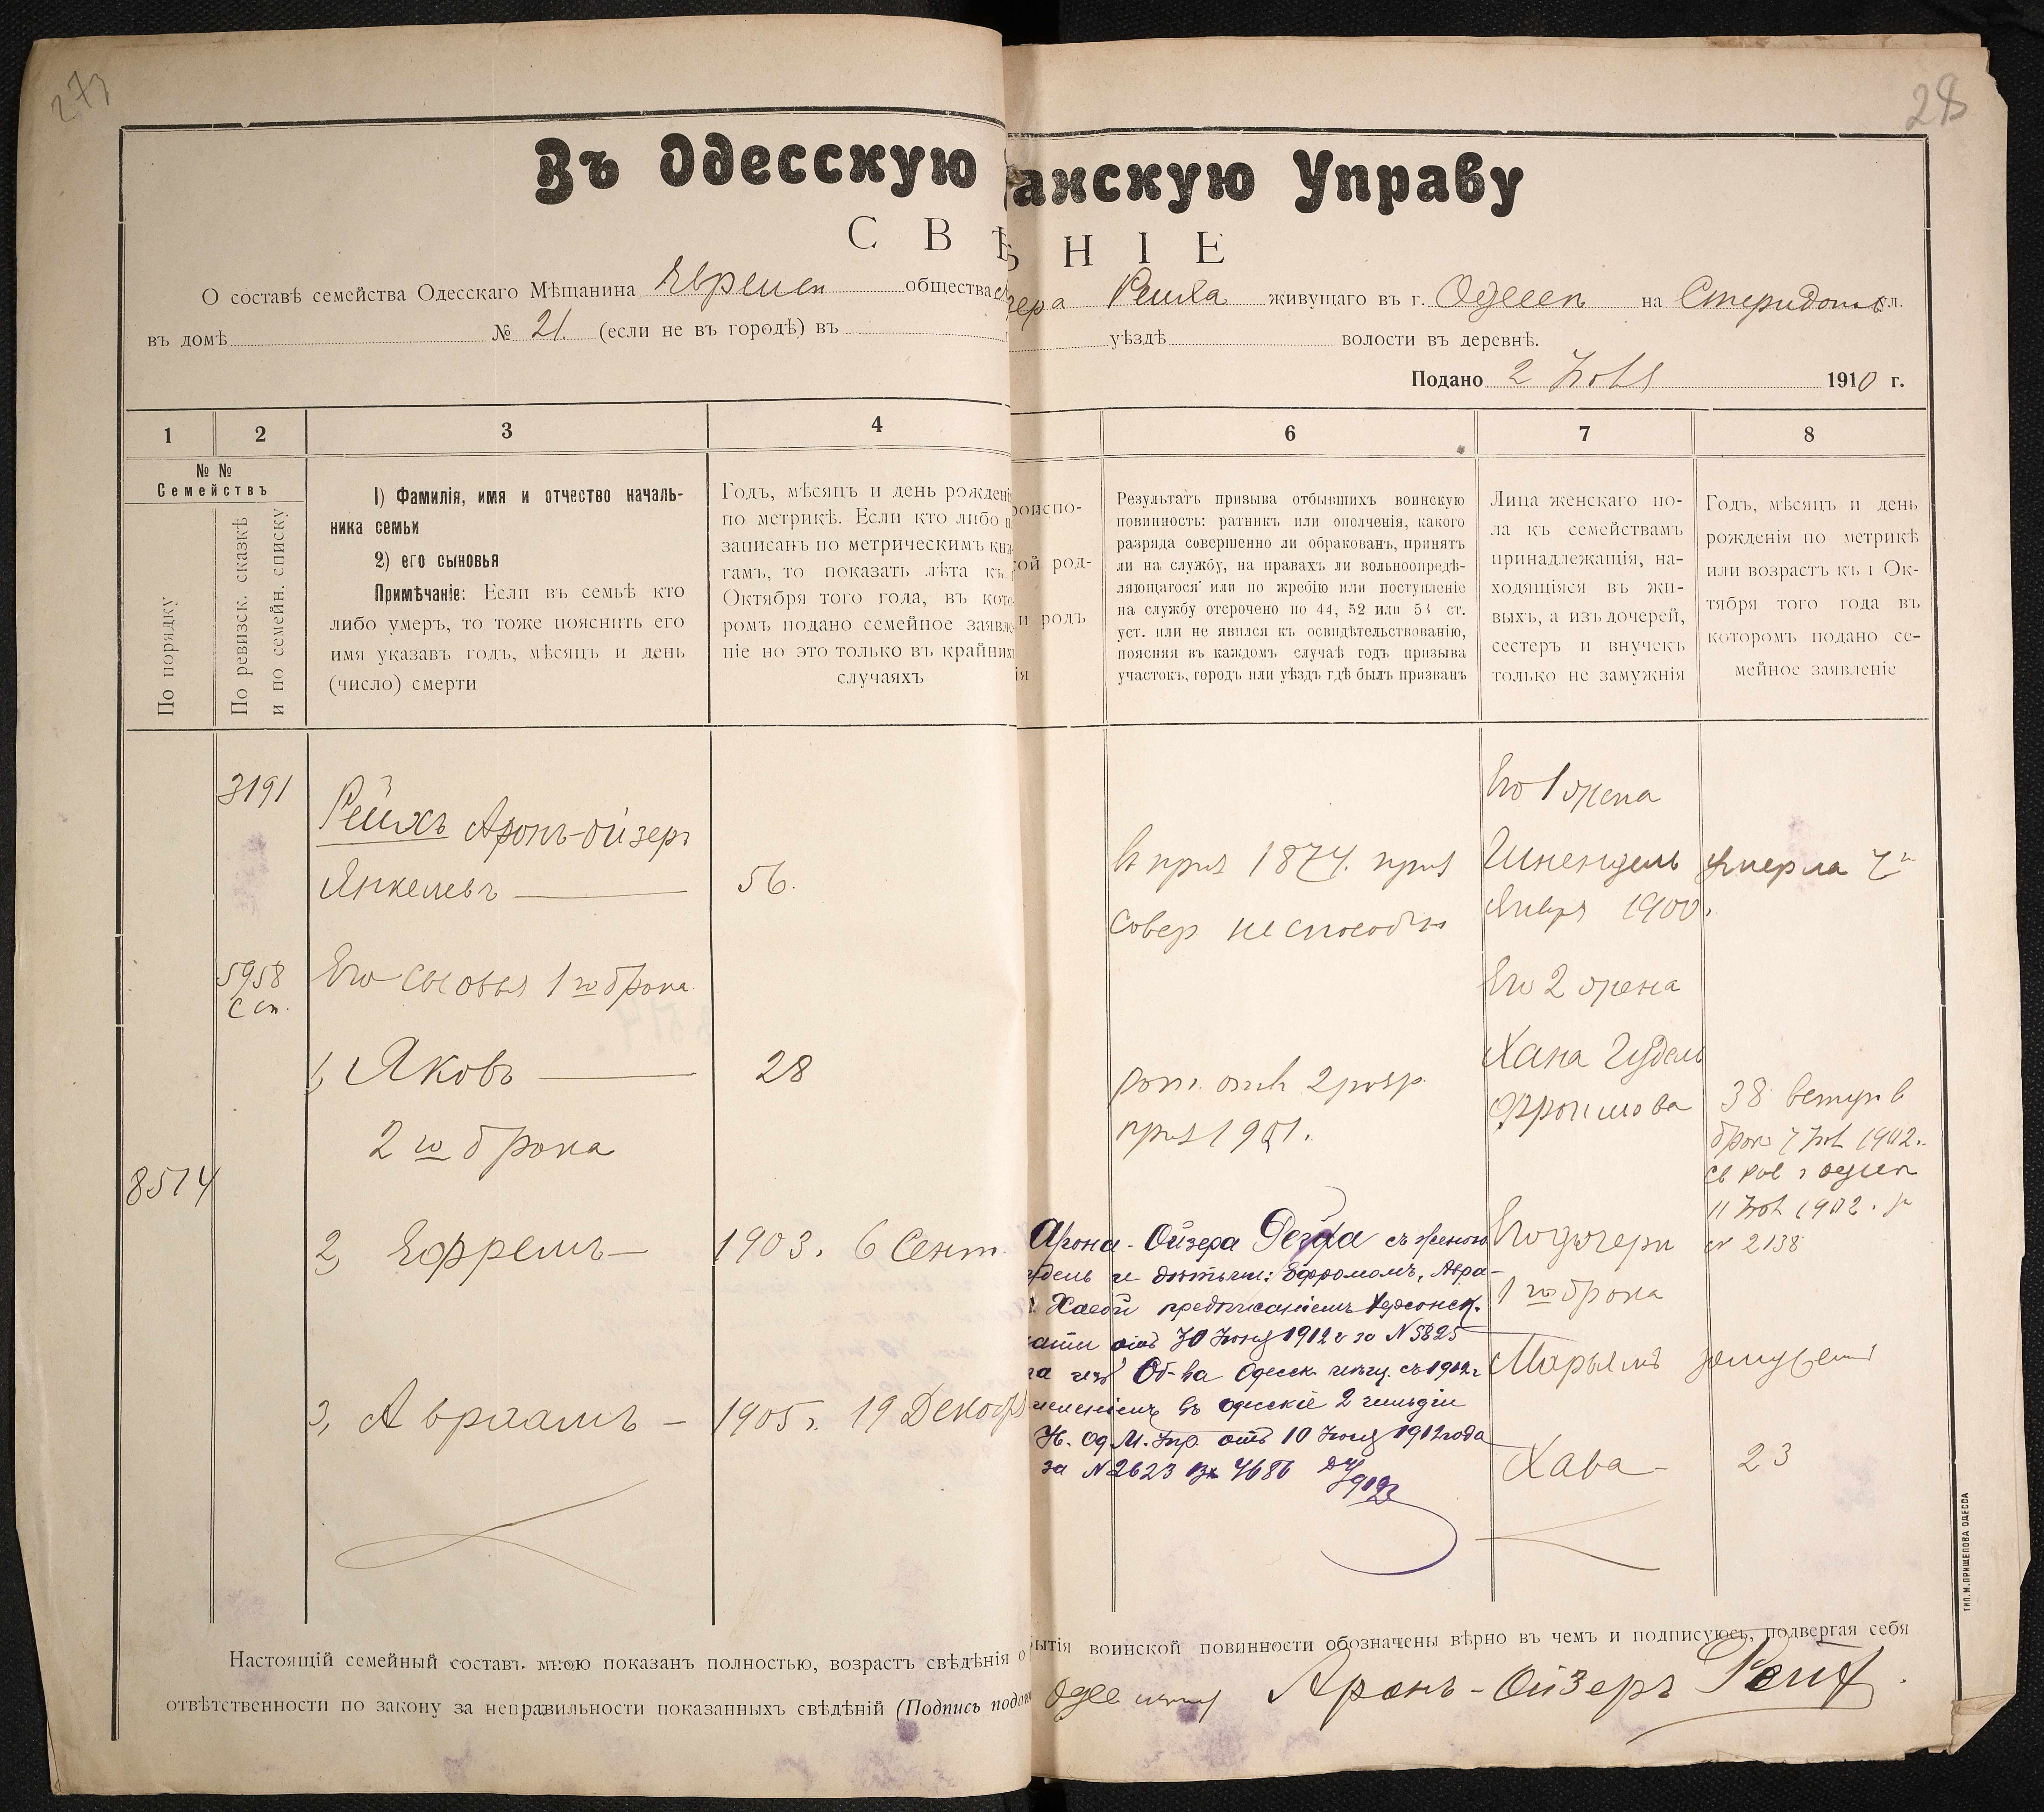 273
28
Въ Одесскую
анскую Управу
С В Ѣ
Н І Е
О составѣ семейства Одесскаго Мѣщанина Евреем общества
зера Рейха живущаго въ г. Одессѣ на ул.
въ домѣ № 21. (если не въ городѣ) въ
уѣздѣ волости въ деревнѣ.
Подано 2 1910 г.
1
2
3
4
6
7
8
№ №
Семействъ
По порядку
По ревизск. сказкѣ
и по семейн. списку
1) Фамилія, имя и отчество началь-
ника семьи
2) его сыновья
Примѣчаніе: Если въ семьѣ кто
либо умеръ, то тоже пояснить его
имя указавъ годъ, мѣсяцъ и день
(число) смерти
Годъ, мѣсяцъ и день рожденi
по метрикѣ. Если кто либо н
записанъ по метрическимъ кни
гамъ, то показать лѣта къ
Октября того года, въ кото
ромъ подано семейное заявле
ніе но это только въ крайних
случаяхъ
роиспо-
ой род-
и родъ
ія
Результатъ призыва отбывшихъ воинскую
повинность: ратникъ или ополченія, какого
разряда совершенно ли обракованъ, принятъ
ли на службу, на правахъ ли вольноопредѣ-
ляющагося или по жребію или поступленіе
на службу отсрочено по 44, 52 или 53 ст.
уст. или не явился къ освидѣтельствованію,
поясняя въ каждомъ случаѣ годъ призыва
участокъ, городъ или уѣздъ гдѣ былъ призванъ
Лица женскаго по-
ла къ семействамъ
принадлежащія, на-
ходящіяся въ жи-
выхъ, а изъ дочерей,
сестеръ и внучекъ
только не замужнія
Годъ, мѣсяцъ и день
рожденія по метрикѣ
или возрастъ къ 1 Ок-
тября того года въ
которомъ подано се-
мейное заявленіе
3191
Рейхъ Аронъ-Ойзеръ
Янкелевъ
56.
5958
С сп.
Его сыновья 1 го брака
1, Яковъ
28
2 го брака
8514
2, Ефремъ
1903. 6 Сент.
3, Авраамъ
1905 г. 19 Декабр
В приз 1874. приз
совер неспособн
рат. опол 2 разр.
приз 1901.
Его 1 жена
Шнендель умерла 7 го
Января 1900.
Его 2 жена
Хана Гудель
Фроимова
38 вступ в
брак 7 1902.
11 1902.
№ 2138
Его дочери
1 го брака
Марьямъ замужемъ
Хава
23
Арона-Ойзера Рейха съ женою
удель и дѣтьми: Эфроимомъ, Авра-
Хавой предписаніемъ Херсонск.
отъ 30 Іюня 1912 г за № 5825
изъ Об-ва Одесск. мѣщ. съ 1912 г
въ одесскіе 2 гильдіи
Од. М. Упр. отъ 10 Іюля 1912 года
за № 2623 Вх 4686
Настоящій семейный составъ мною показанъ полностью, возрастъ свѣдѣнія о
бытія воинской повинности обозначены вѣрно въ чемъ и подписуюсь, подвергая себя
отвѣтственности по закону за неправильности показанныхъ свѣдѣній (Подпись подаю
Аронъ-Ойзеръ Рейх.
ТИП. М. ПРИЩЕПОВА ОДЕССА